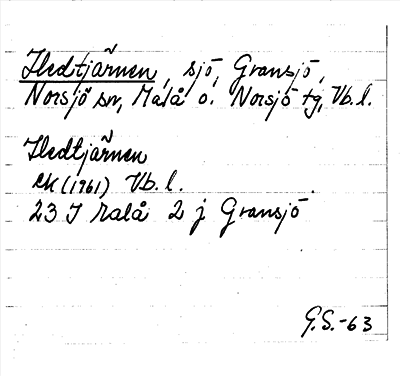 Iledtjärnen, sjö, Gransjö,
Norsjö sn, Malå o. Norsjö tg, Vb. l.
Iledtjärnen
EK (1961) Vb. l.
23 I Malå 2 j Gransjö
G.S.-63